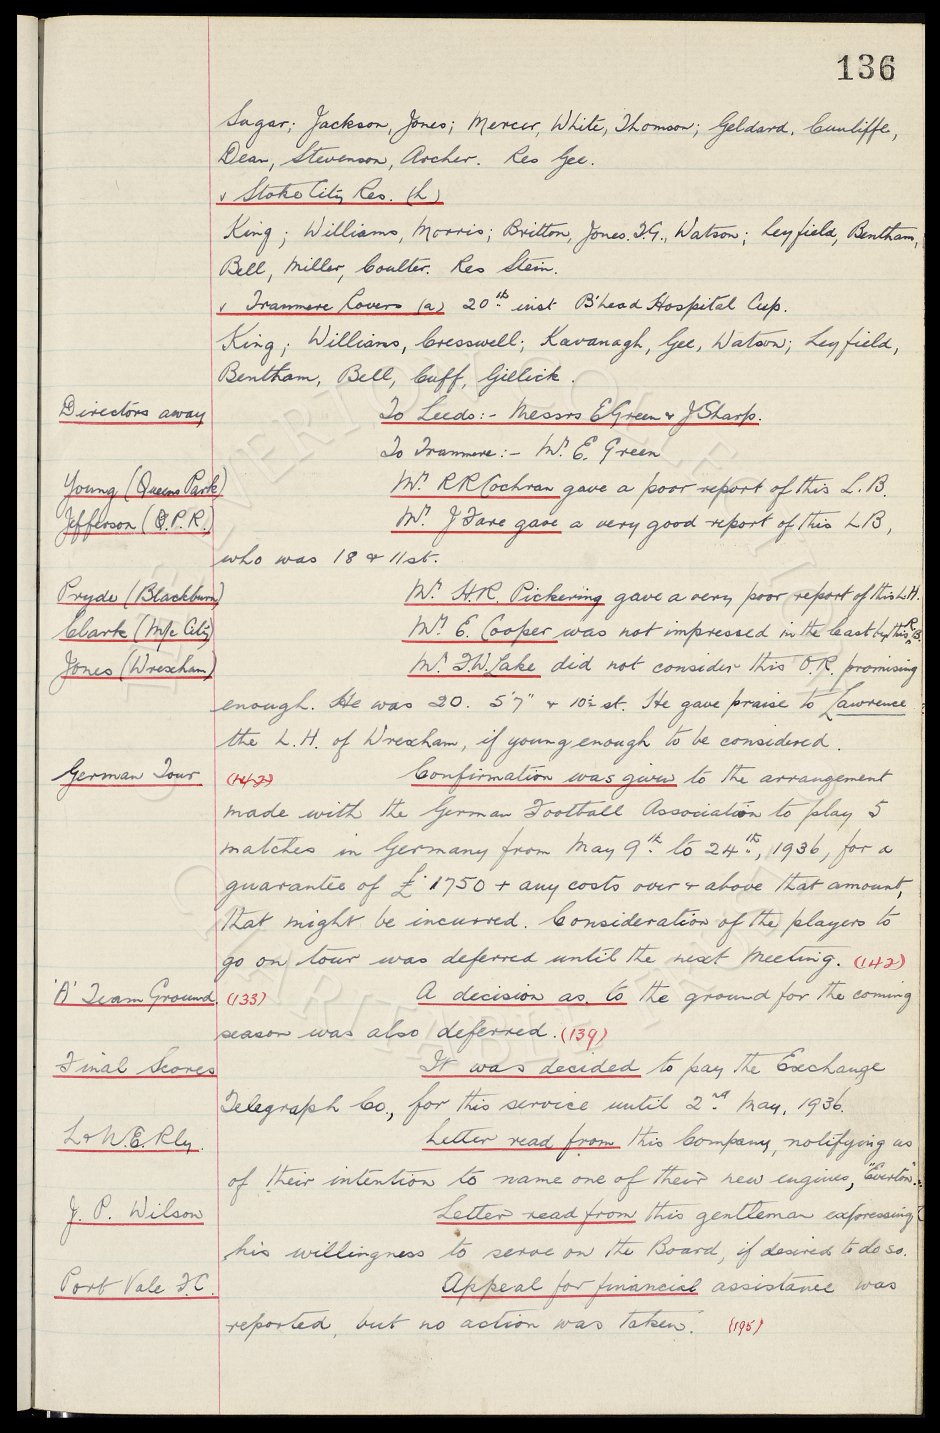 136
Sagar; Jackson, Jones; Mercer, White, Thomson; Geldard, Cunliffe,
Dean, Stevenson, Archer. Res Gee.
v Stoke City Res. (L)
King; Williams, Morris; Britton, Jones. T.G., Watson; Leyfield, Bentham,
Bell, Miller, Coulter. Res Stein.
v Tranmere Rovers (a) 20th inst B'head Hospital Cup.
King; Williams, Cresswell; Kavanagh, Gee, Watson; Leyfield,
Bentham, Bell, Cuff, Gillick.
Directors away To Leeds:- Messrs E Green & J Sharp.
To Tranmere:- Mr. E. Green
Young (Queens Park) Mr. R R Cochran gave a poor report of this L.B.
Jefferson (Q.P.R.) Mr. J Fare gave a very good report of this L B,
who was 18 & 11 st.
Pryde (Blackburn) Mr. H.R. Pickering gave a very poor report of this L.H.
Clark (M/c City) Mr. E. Cooper was not impressed in the least by this R.B.
Jones (Wrexham) Mr. T W. Lake did not consider this O.R. promising
enough. He was 20. 5'7" & 10½ st. He gave praise to Lawrence
the L.H. of Wrexham, if young enough to be considered.
German Tour (142) Confirmation was given to the arrangement
made with the German Football Association to play 5
matches in Germany from May 9th to 24th, 1936, for a
guarantee of £1750 + any costs over & above that amount,
that might be incurred. Consideration of the players to
go on tour was deferred until the next Meeting. (142)
'A' Team Ground (133) A decision as to the ground for the coming
season was also deferred. (139)
Final Scores It was decided to pay the Exchange
Telegraph Co., for this service until 2nd May, 1936.
L & N.E. Rly. Letter read from this Company, notifying us
of their intention to name one of their new engines, "Everton".
J. P. Wilson Letter read from this gentleman expressing
his willingness to serve on the Board, if desired to do so.
Port Vale F.C. Appeal for financial assistance was
reported, but no action was taken. (195)
EVERTON COLLECTION
CHARITABLE TRUST